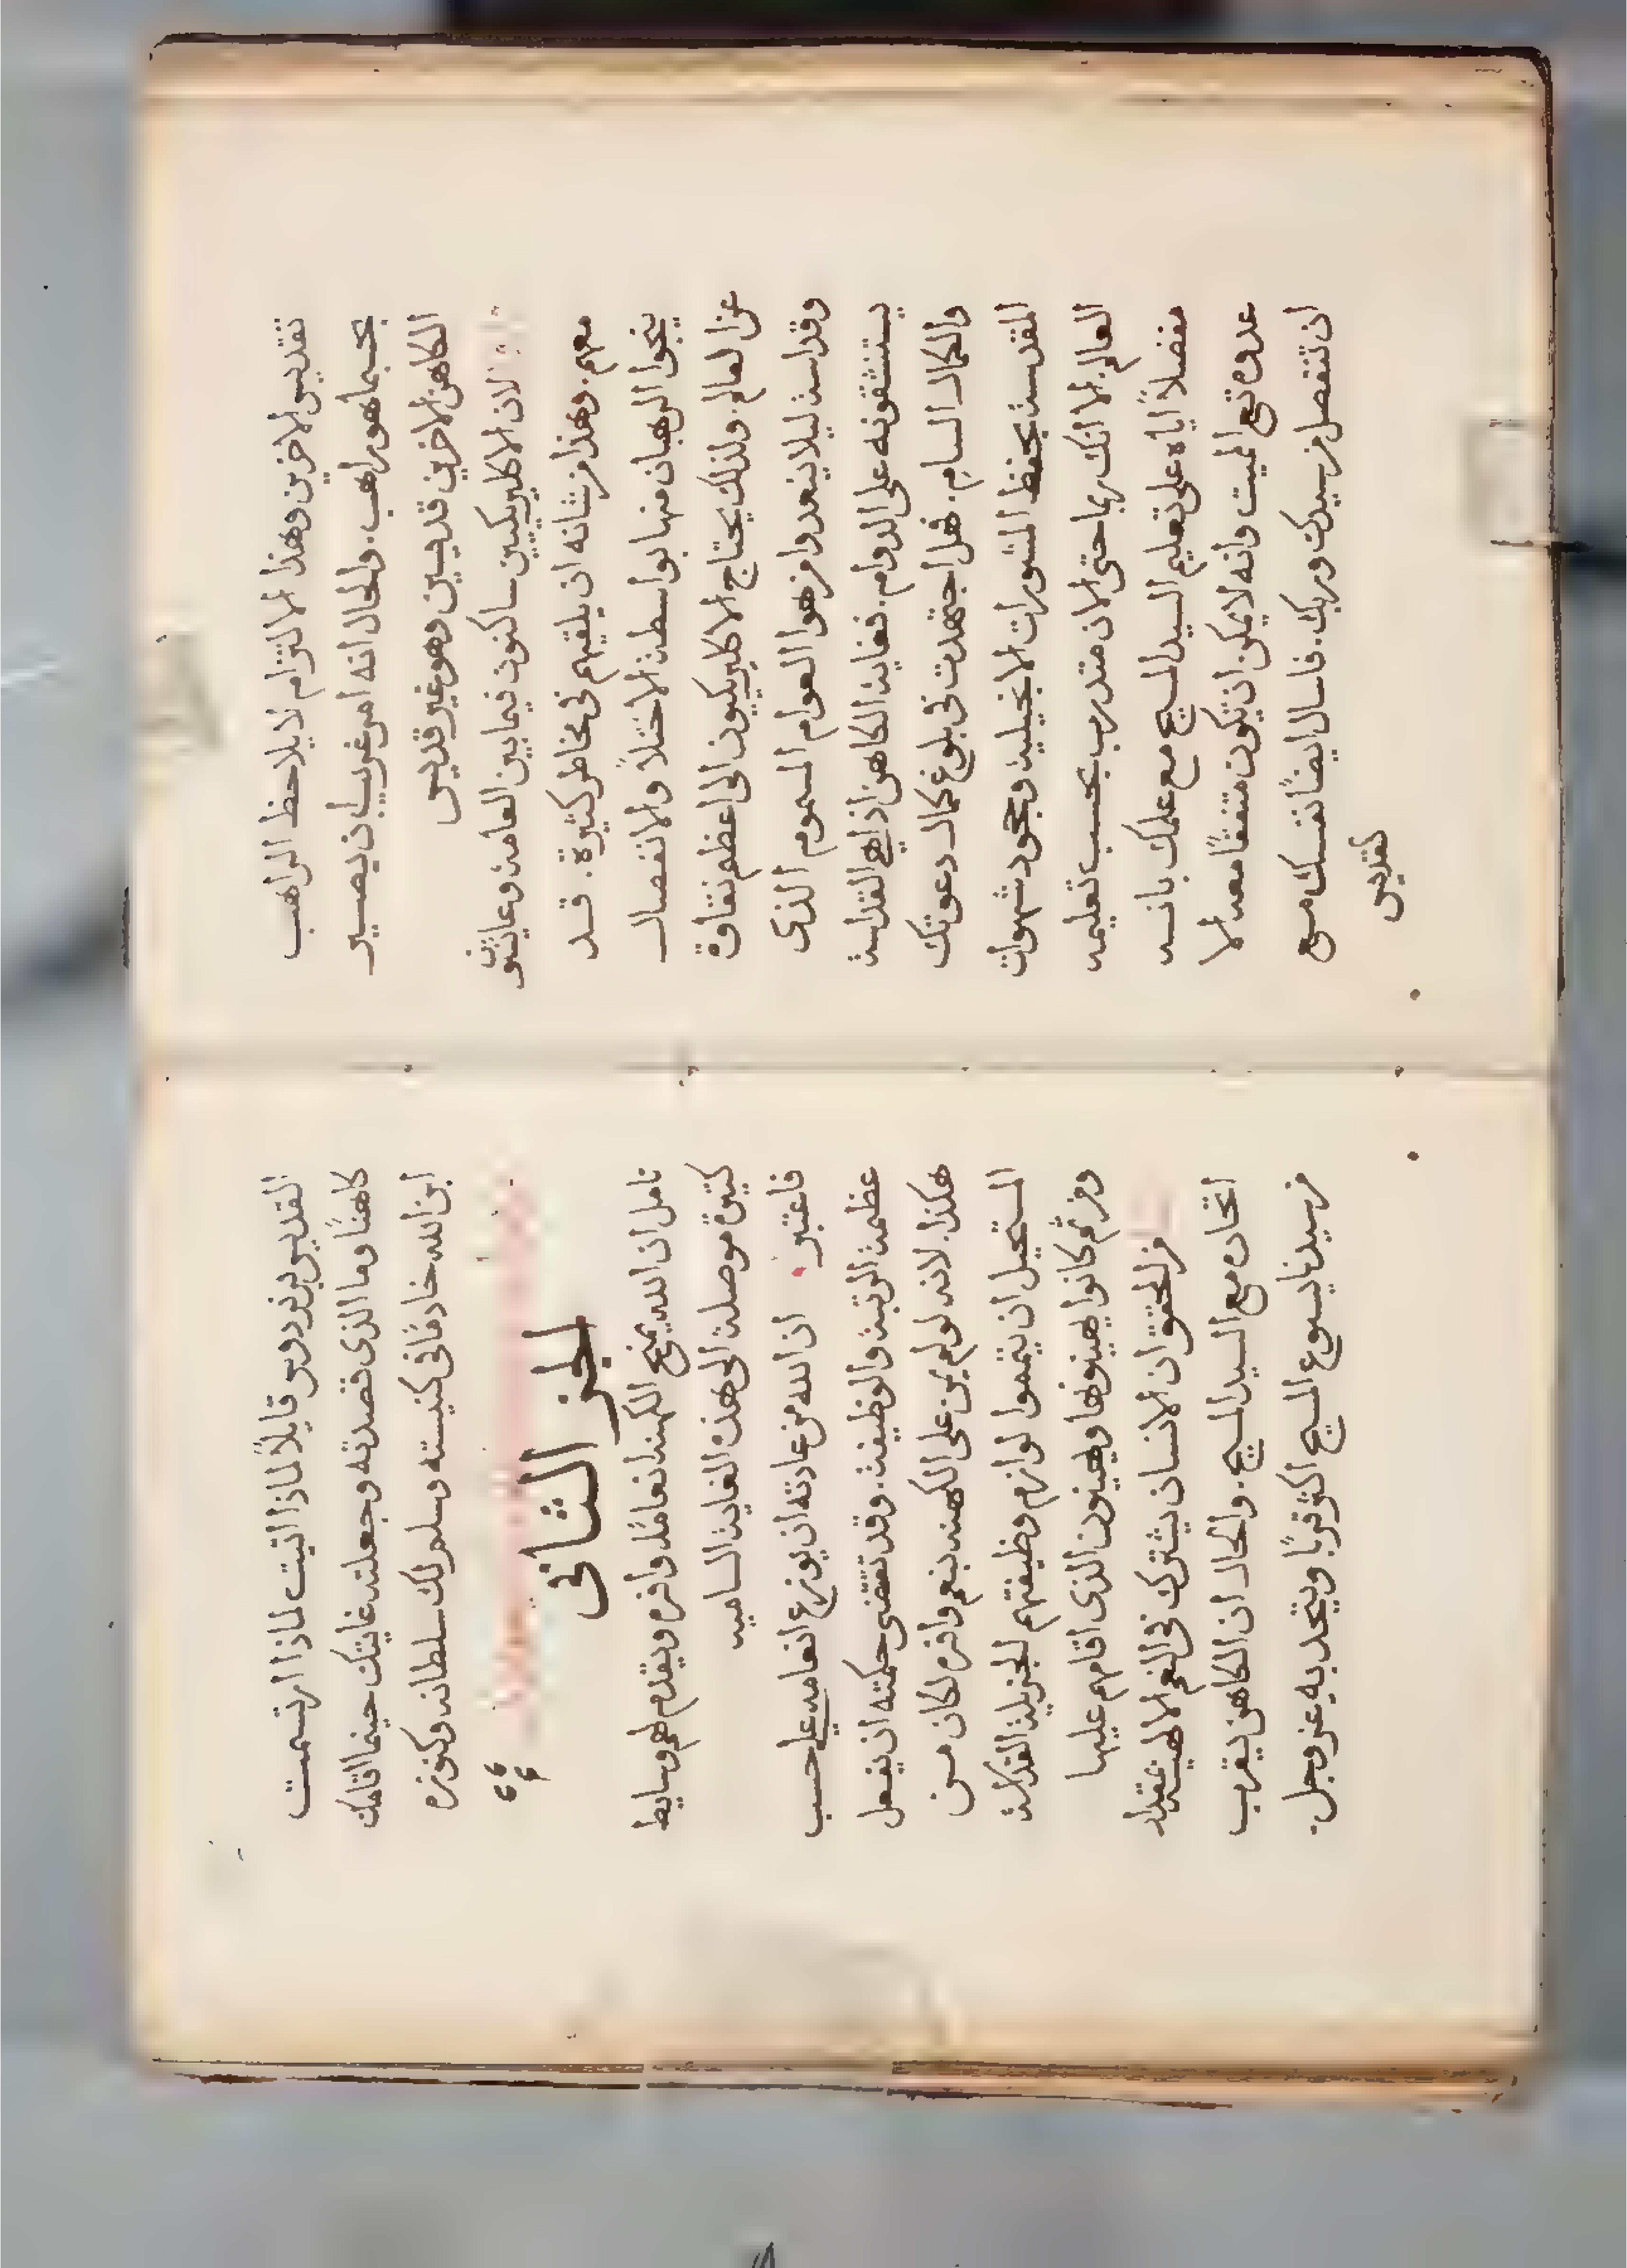 تقديس الاخرين وهذا الالتزام لا يلاحظ الراهب
بحسبما هو راهب. والحال انه امر غريب ان يصير
الكاهن الاخرين قديسين وهو غير قديس
لان الاكليريكيين ساكنون فيما بين العامة وعايشون
معهم. وهذا من شانه ان يلقيهم في مخاطر كثيرة. قد
ينجوا الرهبان منها بواسطة الاختلاء والانفصال
عن العالم. ولذلك يحتاج الاكليريكيون الى اعظم نقاوة
وقداسة ليلا ينعدوا من هوا العوام المسموم الذى
يستنشقونه على الدوام. فغاية الكاهن اذا هي القداسة
والكمال السامِ. فهل اجتهدت في بلوغ كمال دعوتك
المقدسة بحفظ المشورات الانجيلية وجحود شهوات
العالم. الا انك ربما حتى الان متدرب بحسب تعليمه
مفضلاً اياه على تعليم السيد المسيح مع علمك بانه
عدوه تع الميت وانه لا يمكن ان تكون متفقًا معه الا
ان تنفصل من سيدك وربك. فاسال ايضًا نفسك مع
القديس برنردوس قايلاً لماذا اتيت لماذا ارتسمت
كاهنًا وما الذى قصدته وجعلته غايتك حينما اقامك
ابن الله خادمًا في كنيسته وسلم لك سلطانه وكنوزه
الجز الثانى
تامل ان الله يمنح الكهنة انعامًا وافره ويقدم لهم وسايط
كثيرة موصلة الى هذه الغاية الساميه
فاعتبر ان الله من عادته ان يوزع انعامه على حسب
عظمة الرتبة والوظيفة. وقد تقتضى حكمته ان يفعل
هكذا. لانه لو لم يمن على الكهنه بنعم وافره لكان من
المستحيل ان يتمموا لوازم وظيفتهم الجزيلة القداسة
ومن ثم كانوا يهينونها ويهينون الذى اقامهم عليها
من المحقق ان الانسان يشترك في النعم الالهية بمقدار
اتحاده مع السيد المسيح. والحال ان الكاهن يقرب
من سيدنا يسوع المسيح اكثر قربًا ويتحد به عز وجل.